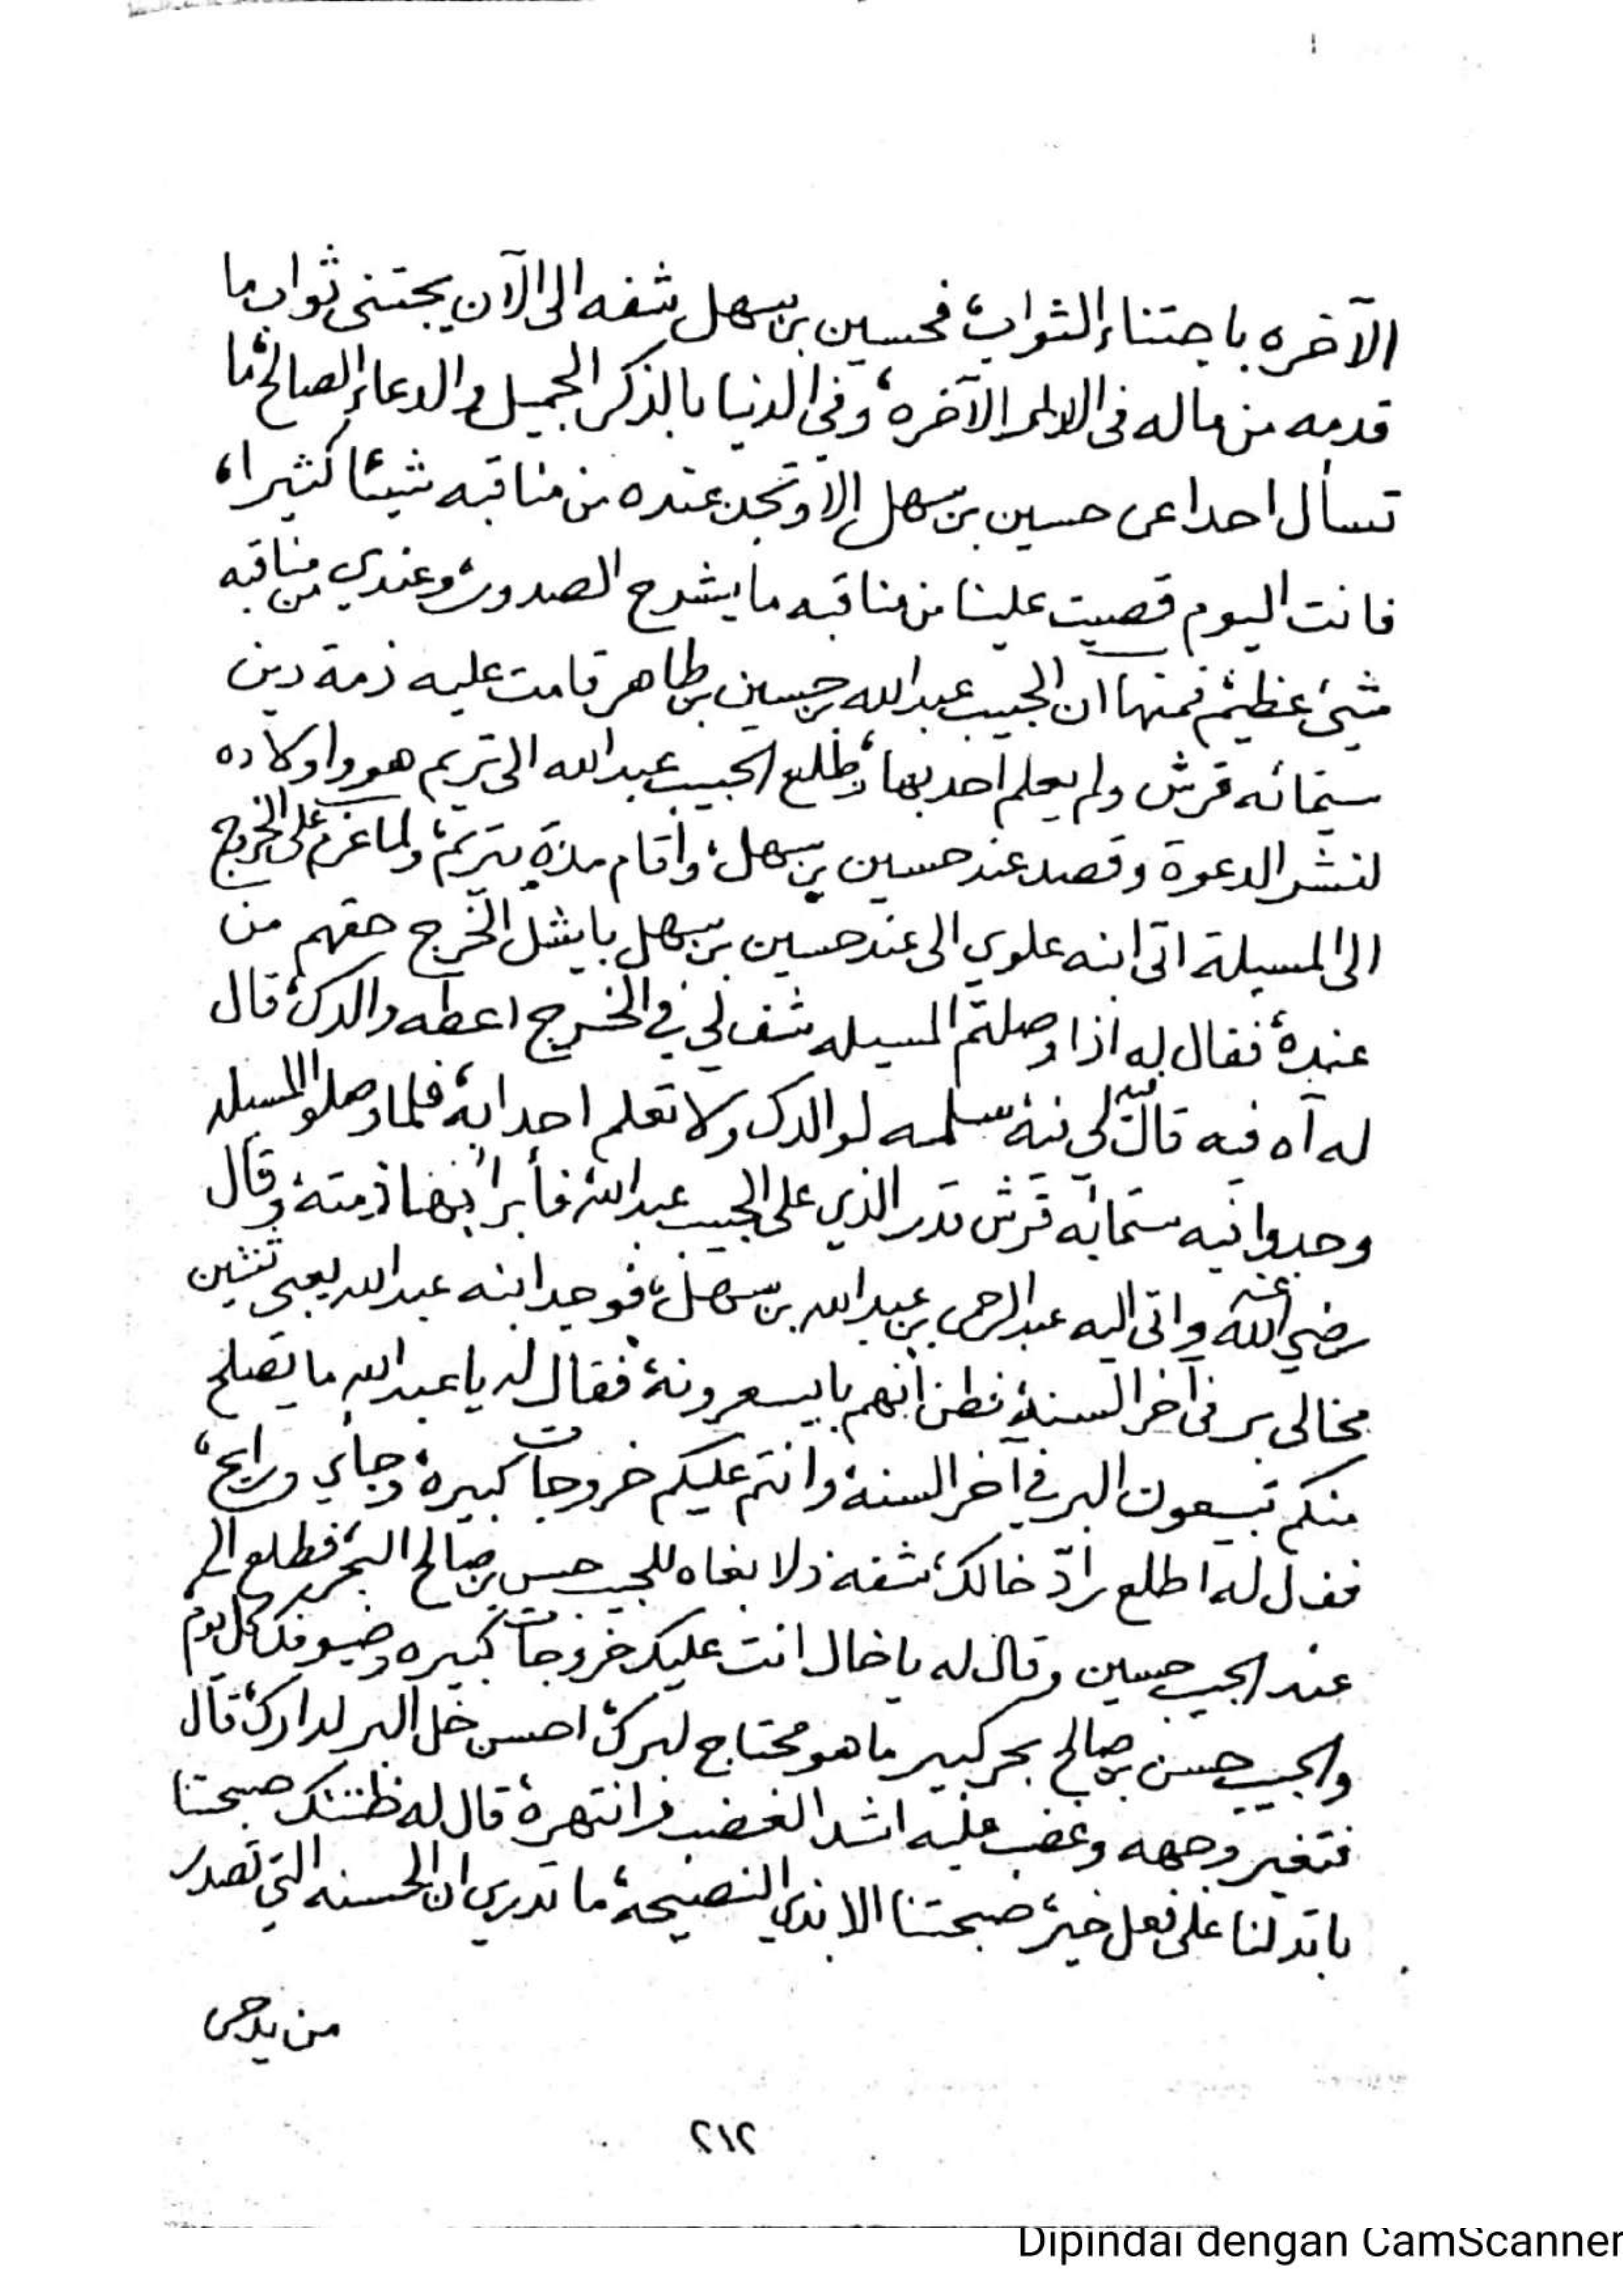 الآخره باجتناء الثواب، فحسين بن سهل شفه الى الآن يجتنى ثواب ما
قدمه من ماله فى الدار الآخره، وفى الدنيا بالذكر الجميل والدعاء الصالح، ما
تسأل احدا عن حسين بن سهل إلا وتجد عنده من مناقبه شيئا كثيرا،
فانت اليوم قصيت علينا من مناقبه ما يشرح الصدور، وعندي من مناقبه
شيئ عظيم، فمنها ان الحبيب عبدالله بن حسين بن طاهر قامت عليه ذمة دين
ستمائه قرش ولم يعلم احد بها، فطلع الحبيب عبدالله الى تريم هو واولاده
لنشر الدعوة وقصد عند حسين بن سهل، وأقام مدة بتريم، ولما عزم على الخروج
الى المسيلة اتى ابنه علوي الى عند حسين بن سهل بايشل الخرج حقهم من
عنده، فقال له اذا وصلتم المسيله شف لي في الخرج اعطه والدك، قال
له آه فيه قال شيء لي فيه سلمه لوالدك ولا تعلم احدا به، فلما وصلوا المسيله
وجدوا فيه ستمائه قرش قدر الذي على الحبيب عبدالله، فأبرأ بها ذمته، وقال
رضي الله عنه واتى اليه عبدالرحمن بن عبدالله بن سهل، فوجد ابنه عبدالله يعبي ثنتين
مخالى بر فى آخر السنة، فظن أنهم بايبيعونه، فقال له يا عبدالله ما يصلح
منكم تبيعون البر في آخر السنة، وانتم عليكم خروجات كبيرة، وجاي ورايح،
فقال له اطلع رادّ خالك، شفه ذلا بغاه للحبيب حسن بن صالح البحر، فطلع الى
عند الحبيب حسين وقال له يا خال انت عليك خروجات كبيره وضيوفك كل يوم
والحبيب حسن بن صالح بحر كبير ما هو محتاج لبرك، احسن خل البر لدارك، قال
فتغير وجهه وغضب عليه اشد الغضب وانتهره، قال له ظننتك صبحتنا
باتدلنا على فعل خير، صبحتنا الا بذي النصيحة، ما تدري ان الحسنه التي تصدر
من يد حسن
٢١٢
Dipindai dengan CamScanner